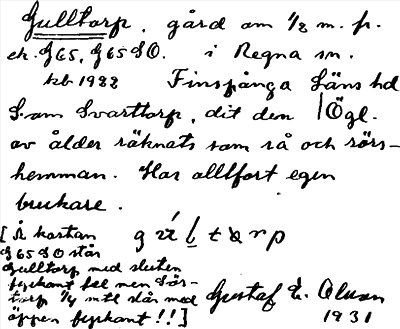 Gulltorp, gård om 1/2 m. p.
ek. G65, G65SO. i Regna sn.
kb 1922 Finspånga Läns hd
S. om Svarttorp, dit den | Ögl.
av ålder räknats som rå och rörs-
hemman. Har alltfort egen
brukare.
[Å kartan
G65SO står
Gulltorp med sluten
fyrkant fel men Sör-
torp 1/4 mtl står med
öppen fyrkant!!]
Gustaf E. Olsson
1931